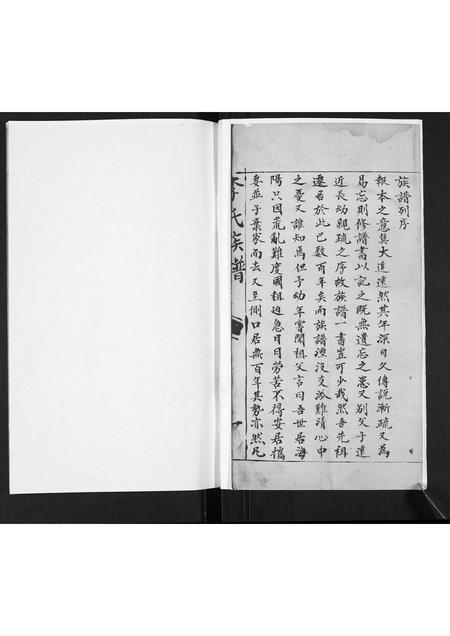 族譜列序
報本之意莫大追遠然其年深日久傳說漸疏又為
易忘則修譜書以記之既無遺忘之患又別父子遠
近長幼親疏之序故族譜一書豈可少哉然吾先祖
遷居於此已数百年矣而族譜湮没支派難清心中
之憂又誰知焉但予幼年嘗聞祖父言曰吾世居海
陽只因荒亂難度國租迫急日日勞苦不得安居攜
妻並子棄家而去又至側口居無百年其勢亦然凡
李氏族譜